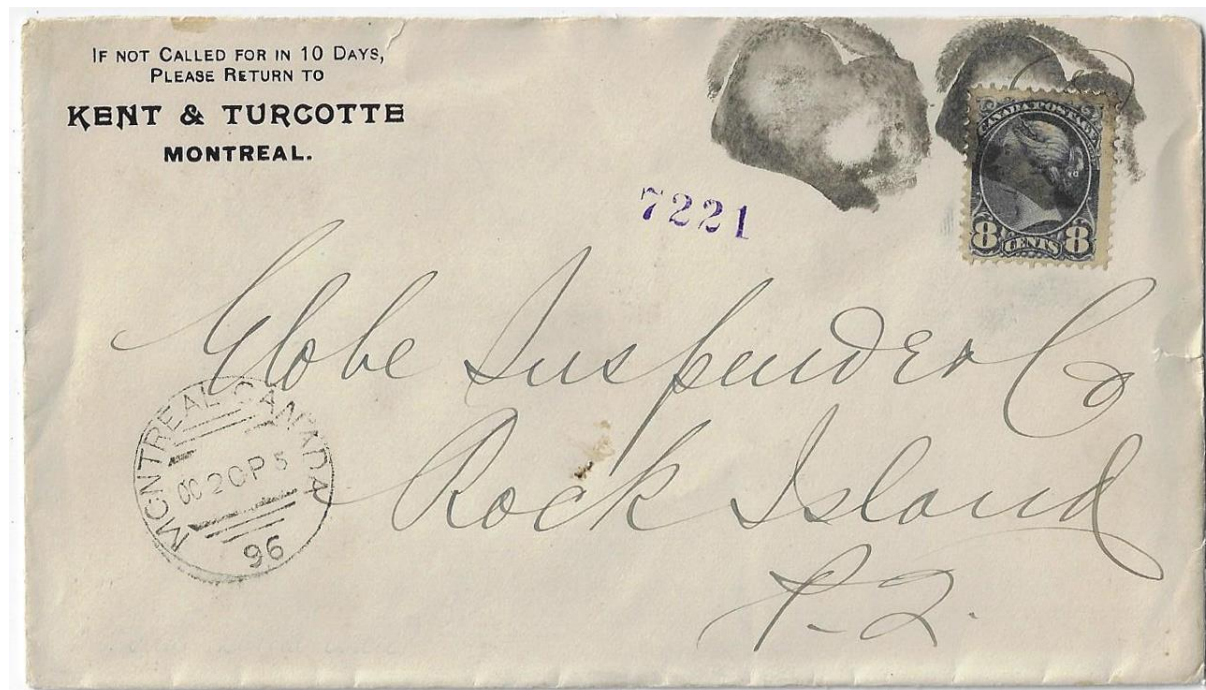 IF NOT CALLED FOR IN 10 DAYS,
PLEASE RETURN TO
KENT & TURCOTTE
MONTREAL.
7221
CANADA POSTAGE
8 CENTS 8
Globe Suspender Co
Rock Island
P-Q.
MONTREAL CANADA
OC 20 P 5
96